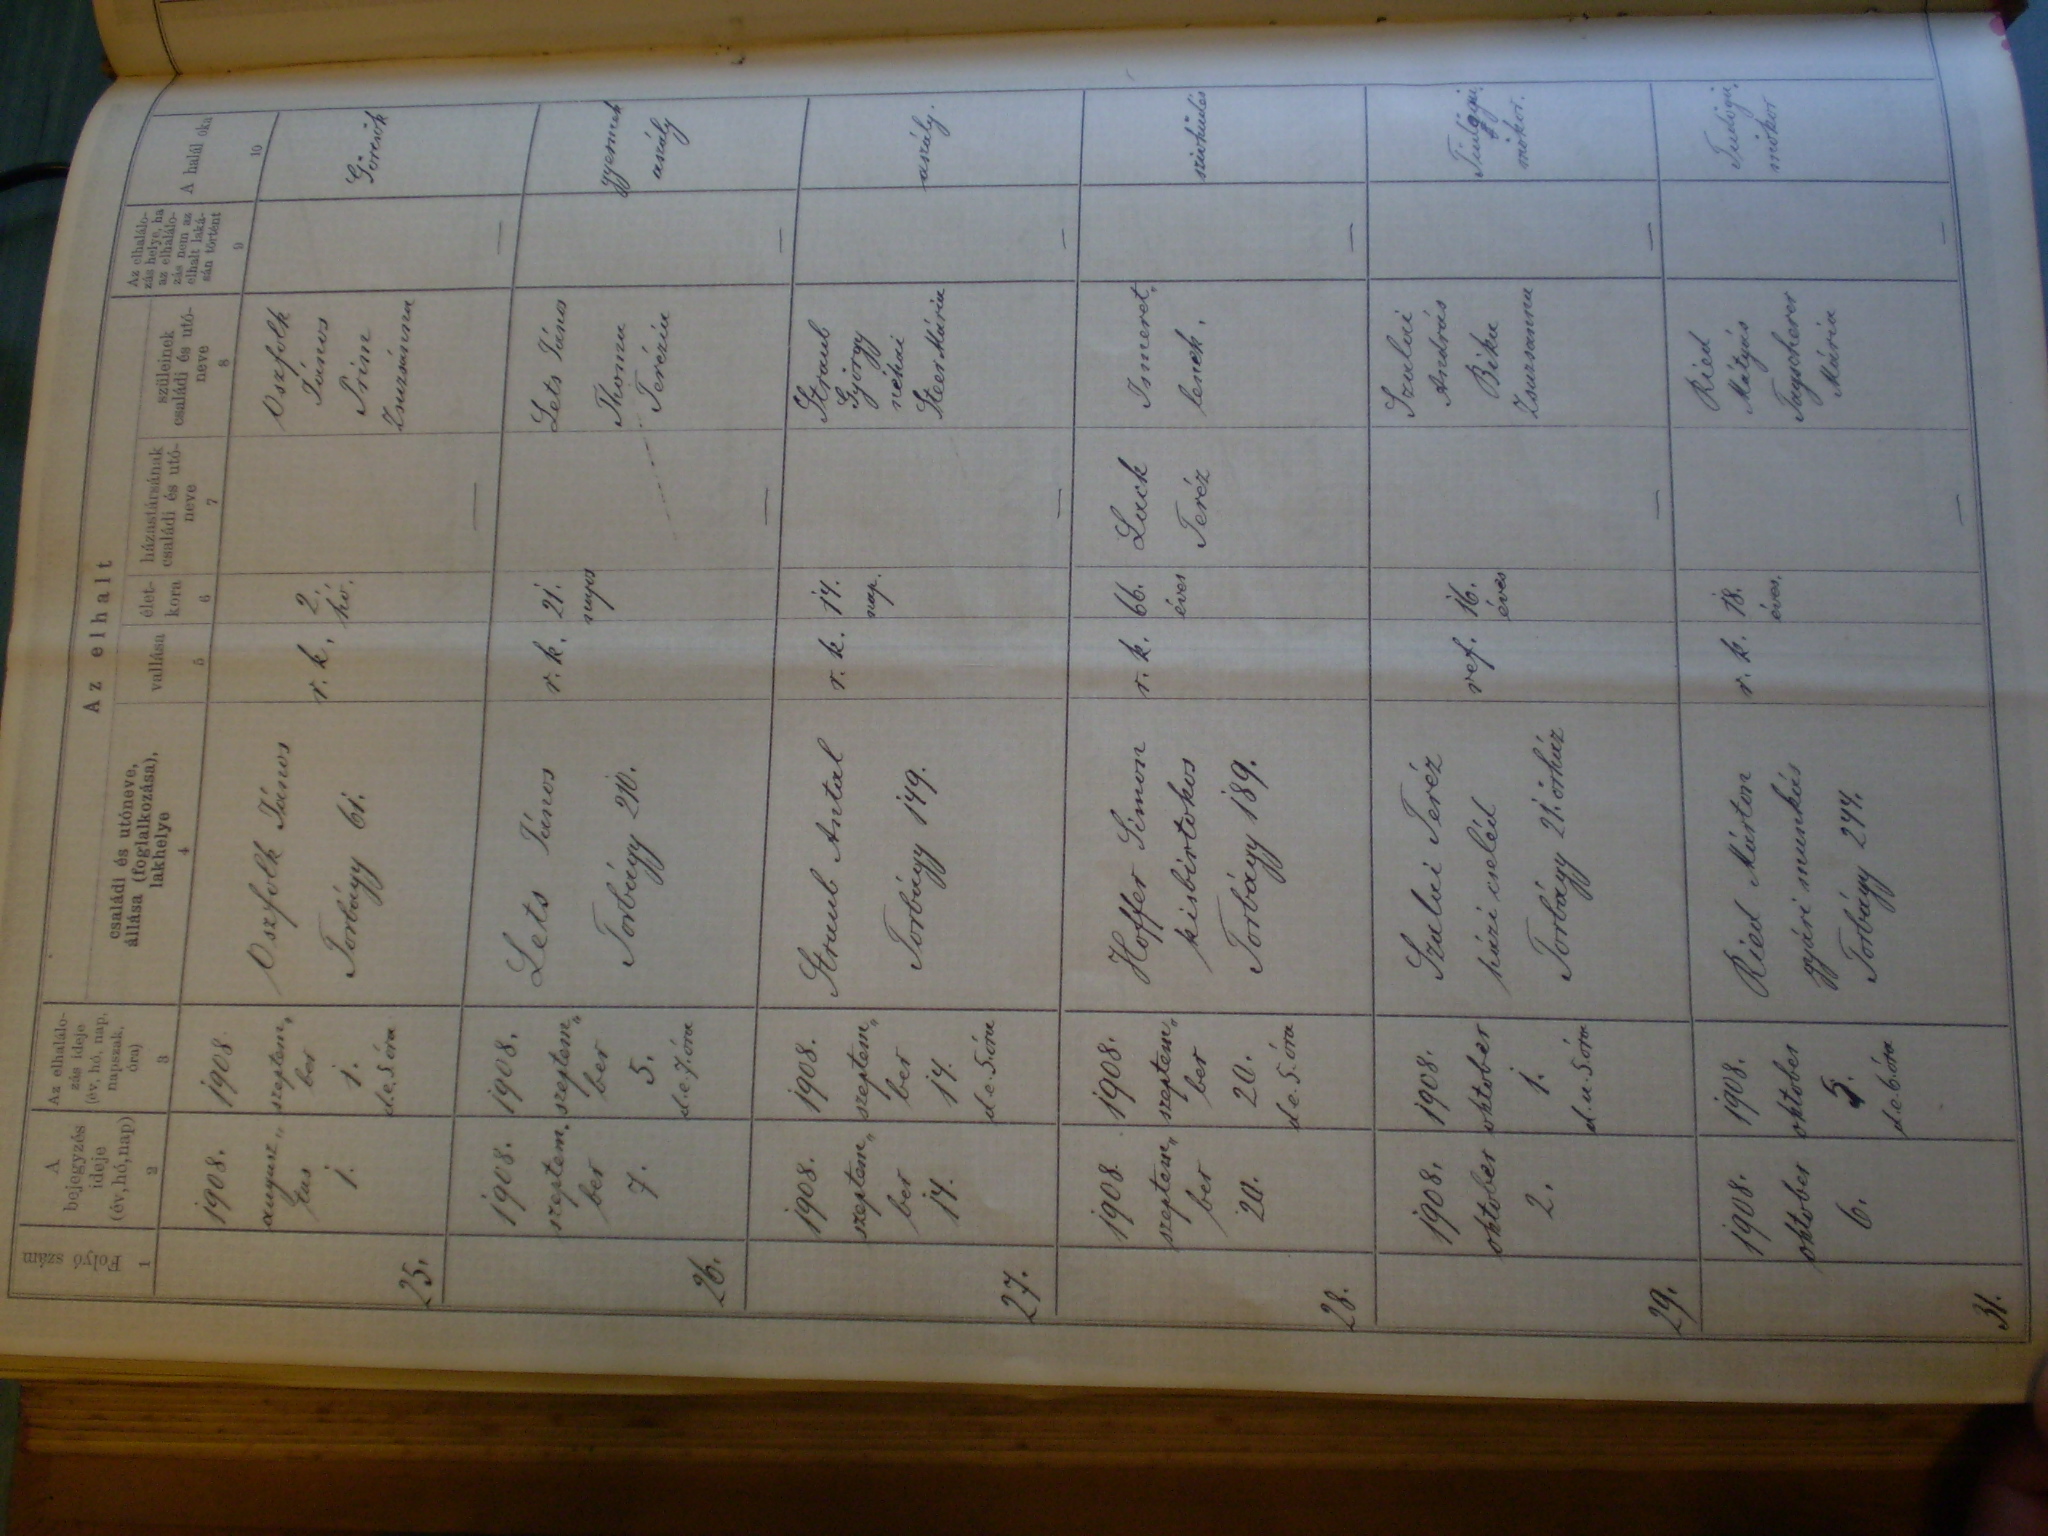 Az elhalt
Folyó szám
A bejegyzés ideje (év, hó, nap)
Az elhalálo-
zás ideje
(év, hó, nap,
napszak,
óra)
családi és utóneve,
állása (foglalkozása),
lakhelye
vallása
élet-
kora
házastársának
családi és utó-
neve
szüleinek
családi és utó-
neve
Az elhalálo-
zás helye, ha
az elhaláló-
zás nem az
elhalt laká-
sán történt
A halál óka
1 2 3 4 5 6 7 8 9 10
25.
1908.
augusz„
tus
1.
1908
szeptem„
ber
1.
d.e. 5. óra
Oszfolk János
Torbágy 61.
r. k.
2.
hó.
—
Oszfolk
János
Prim
Zsuzsánna
—
Görcsök
26.
1908.
szeptem.
ber
7.
1908.
szeptem„
ber
5.
d.e. 7. óra
Lets János
Torbágy 210.
r. k.
21.
napos
—
Lets János
Thoma
Terézia
—
gyermek
aszály
27.
1908.
szeptem„
ber
14.
1908.
szeptem„
ber
14.
d.e. 5. óra
Straub Antal
Torbágy 149.
r. k.
14.
nap.
—
Straub
György
néhai
Steer Mária
—
aszály.
28.
1908
szeptem„
ber
20.
1908.
szeptem„
ber
20.
d.e. 5. óra
Hoffer Simon
kisbirtokos
Torbágy 189.
r. k.
66.
éves
Lack
Teréz
Ismeret„
lenek.
—
szivhüdés
29.
1908.
október
2.
1908.
október
1.
d.u. 5. óra
Szalui Teréz
házi cseléd
Torbágy 21. őrház
ref.
16.
éves
—
Szalui
András
Bika
Zsuzsanna
—
Tüdőgü„
mőkór.
31.
1908.
október
6.
1908.
október
5.
d.e. 6. óra
Ried Márton
gyári munkás
Torbágy 244.
r. k.
18.
éves.
—
Ried
Mátyás
Tagscherer
Mária
—
Tüdőgü„
mőkór